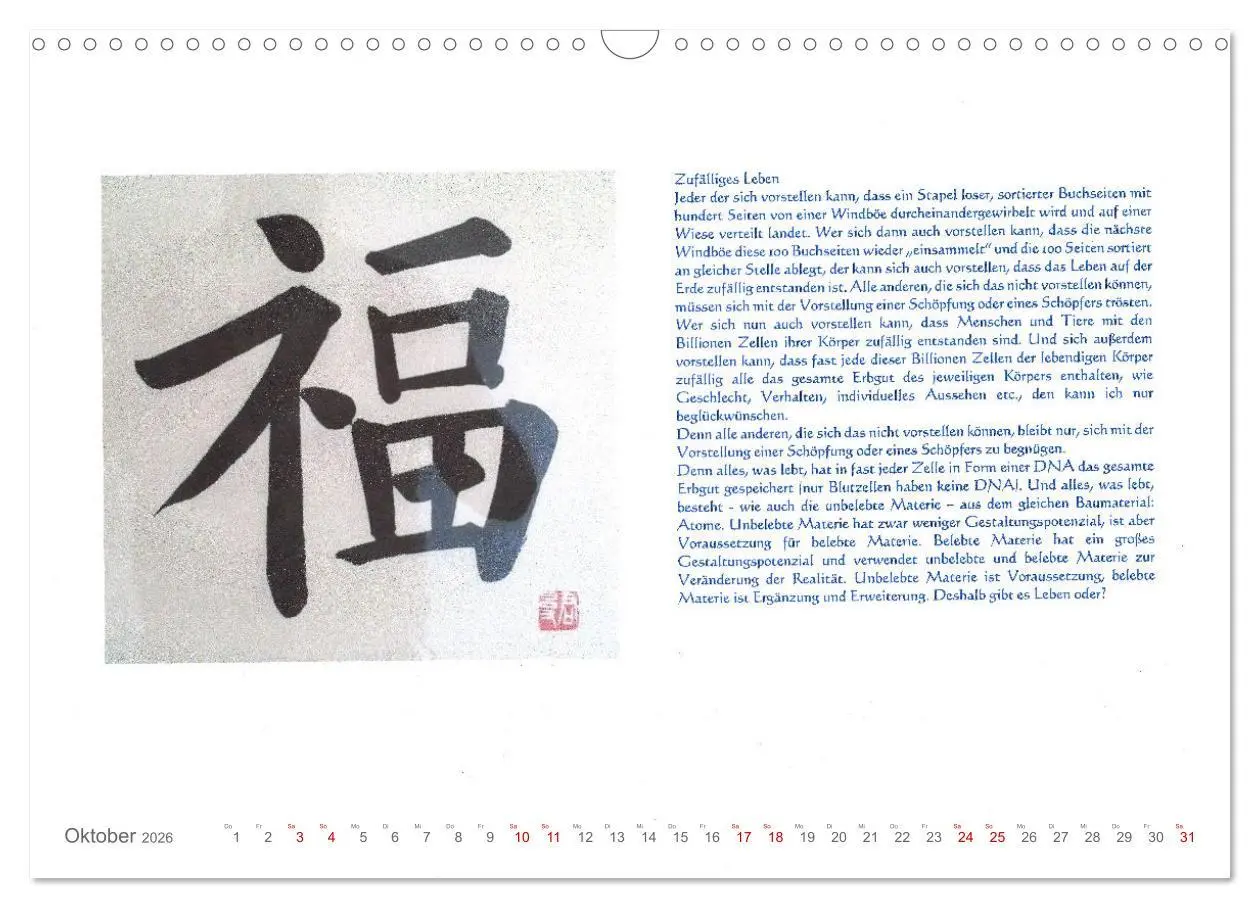 福
Zufälliges Leben
Jeder der sich vorstellen kann, dass ein Stapel loser, sortierter Buchseiten mit
hundert Seiten von einer Windböe durcheinandergewirbelt wird und auf einer
Wiese verteilt landet. Wer sich dann auch vorstellen kann, dass die nächste
Windböe diese 100 Buchseiten wieder „einsammelt“ und die 100 Seiten sortiert
an gleicher Stelle ablegt, der kann sich auch vorstellen, dass das Leben auf der
Erde zufällig entstanden ist. Alle anderen, die sich das nicht vorstellen können,
müssen sich mit der Vorstellung einer Schöpfung oder eines Schöpfers trösten.
Wer sich nun auch vorstellen kann, dass Menschen und Tiere mit den
Billionen Zellen ihrer Körper zufällig entstanden sind. Und sich außerdem
vorstellen kann, dass fast jede dieser Billionen Zellen der lebendigen Körper
zufällig alle das gesamte Erbgut des jeweiligen Körpers enthalten, wie
Geschlecht, Verhalten, individuelles Aussehen etc., den kann ich nur
beglückwünschen.
Denn alle anderen, die sich das nicht vorstellen können, bleibt nur, sich mit der
Vorstellung einer Schöpfung oder eines Schöpfers zu begnügen.
Denn alles, was lebt, hat in fast jeder Zelle in Form einer DNA das gesamte
Erbgut gespeichert (nur Blutzellen haben keine DNA). Und alles, was lebt,
besteht - wie auch die unbelebte Materie – aus dem gleichen Baumaterial:
Atome. Unbelebte Materie hat zwar weniger Gestaltungspotenzial, ist aber
Voraussetzung für belebte Materie. Belebte Materie hat ein großes
Gestaltungspotenzial und verwendet unbelebte und belebte Materie zur
Veränderung der Realität. Unbelebte Materie ist Voraussetzung, belebte
Materie ist Ergänzung und Erweiterung. Deshalb gibt es Leben oder?
Do Fr Sa So Mo Di Mi Do Fr Sa So Mo Di Mi Do Fr Sa So Mo Di Mi Do Fr Sa So Mo Di Mi Do Fr Sa
Oktober 2026 1 2 3 4 5 6 7 8 9 10 11 12 13 14 15 16 17 18 19 20 21 22 23 24 25 26 27 28 29 30 31